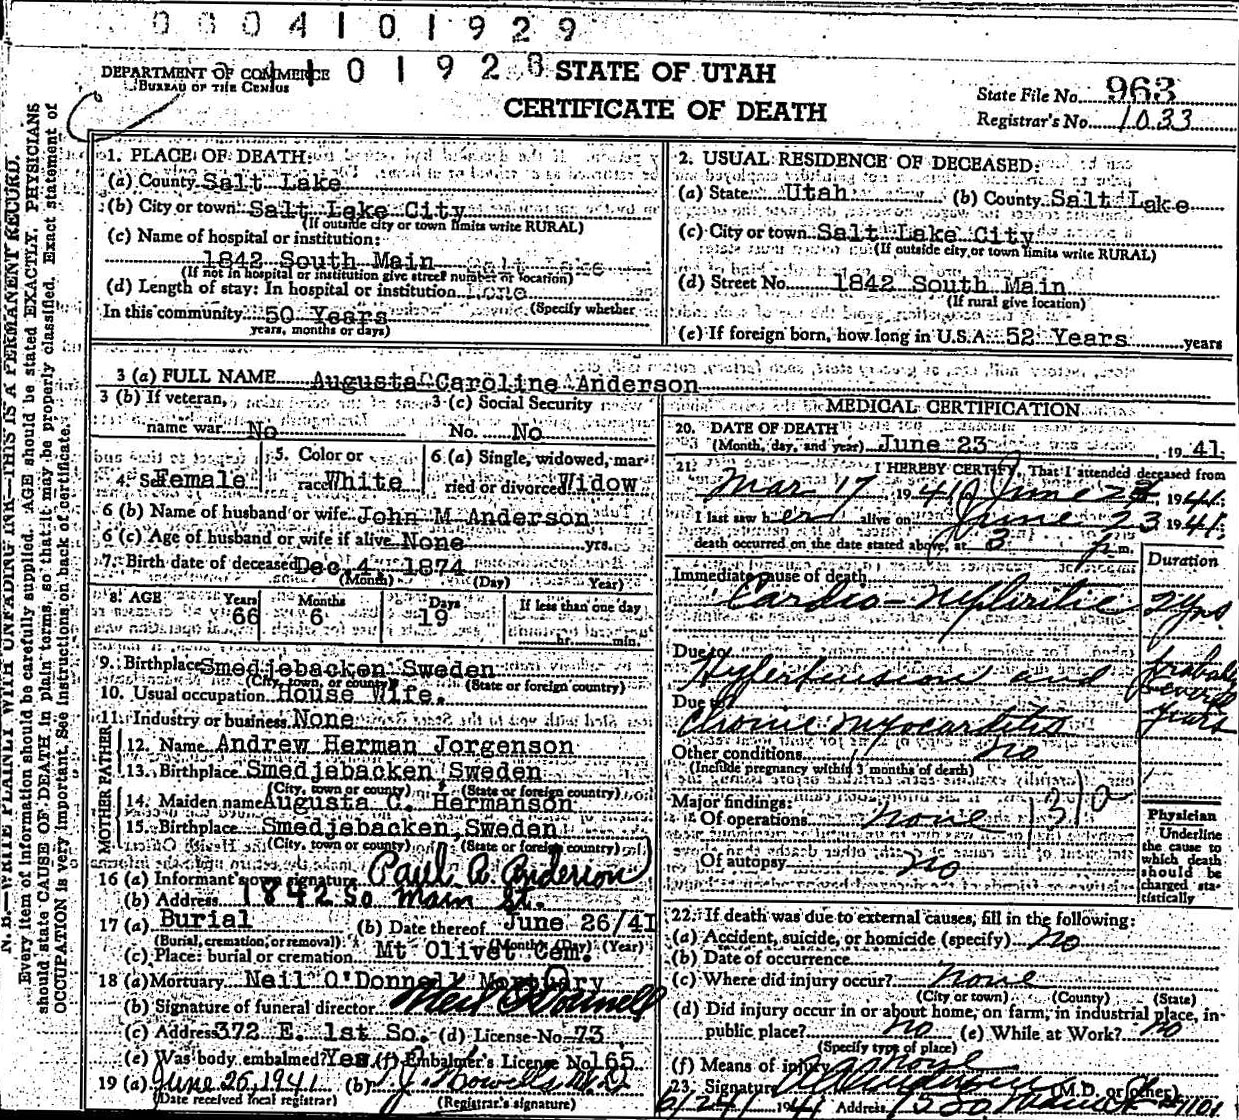 0 0 0 4 1 0 1 9 2 9
0 1 9 2 8
DEPARTMENT OF COMMERCE
BUREAU OF THE CENSUS
STATE OF UTAH
CERTIFICATE OF DEATH
State File No. 963
Registrar's No. 1033
N. B.—WRITE PLAINLY WITH UNFADING INK—THIS IS A PERMANENT RECORD.
Every item of information should be carefully supplied. AGE should be stated EXACTLY. PHYSICIANS
should state CAUSE OF DEATH in plain terms, so that it may be properly classified. Exact statement of
OCCUPATION is very important. See instructions on back of certificate.
1. PLACE OF DEATH:
(a) County Salt Lake
(b) City or town Salt Lake City
(If outside city or town limits write RURAL)
(c) Name of hospital or institution:
1842 South Main
(If not in hospital or institution give street number or location)
(d) Length of stay: In hospital or institution None
(Specify whether
In this community 50 Years
years, months or days)
2. USUAL RESIDENCE OF DECEASED:
(a) State Utah (b) County Salt Lake
(c) City or town Salt Lake City
(If outside city or town limits write RURAL)
(d) Street No. 1842 South Main
(If rural give location)
(e) If foreign born, how long in U.S.A. 52 Years years
3 (a) FULL NAME Augusta Caroline Anderson
3 (b) If veteran, 3 (c) Social Security
name war No No. No
4. Sex Female 5. Color or race White 6 (a) Single, widowed, married or divorced Widow
6 (b) Name of husband or wife John M Anderson
6 (c) Age of husband or wife if alive None yrs.
7. Birth date of deceased Dec. 4, 1874
(Month) (Day) Year)
8. AGE Years Months Days If less than one day
66 6 19 hr. min.
9. Birthplace Smedjebacken Sweden
(City, town, or county) (State or foreign country)
10. Usual occupation House Wife.
11. Industry or business None
FATHER
12. Name Andrew Herman Jorgenson
13. Birthplace Smedjebacken Sweden
(City, town or county) (State or foreign country)
MOTHER
14. Maiden name Augusta C. Hermanson
15. Birthplace Smedjebacken, Sweden
(City, town or county) (State or foreign country)
16 (a) Informant's own signature Paul A Anderson
(b) Address 1842 So Main St.
17 (a) Burial (b) Date thereof June 26/41
(Burial, cremation, or removal) (Month) (Day) (Year)
(c) Place: burial or cremation Mt Olivet Cem.
18 (a) Mortuary Neil O'Donnell Mortuary
(b) Signature of funeral director Neil O'Donnell
(c) Address 372 E. 1st So. (d) License No. 73
(e) Was body embalmed? Yes (f) Embalmer's License No. 165
19 (a) June 26, 1941 (b)
(Date received local registrar) (Registrar's signature)
MEDICAL CERTIFICATION
20. DATE OF DEATH
(Month, day, and year) June 23 , 19 41
21. I HEREBY CERTIFY, That I attended deceased from
Mar 17 1941 June 1941
I last saw her alive on June 23 1941
death occurred on the date stated above, at 3 p m.
Duration
Immediate cause of death
Cardio-nephritic 2 yrs
Due to
Hypertension and probably several years
Due to
Chronic myocarditis
Other conditions no
(Include pregnancy within 3 months of death)
Major findings:
Of operations none
Of autopsy no
Physician
Underline
the cause to
which death
should be
charged sta-
tistically
22. If death was due to external causes, fill in the following:
(a) Accident, suicide, or homicide (specify) No
(b) Date of occurrence
(c) Where did injury occur? none
(City or town) (County) (State)
(d) Did injury occur in or about home, on farm, in industrial place, in
public place? no (e) While at Work? no
(Specify type of place)
(f) Means of injury none
23. Signature (M.D. or other)
1941 Address